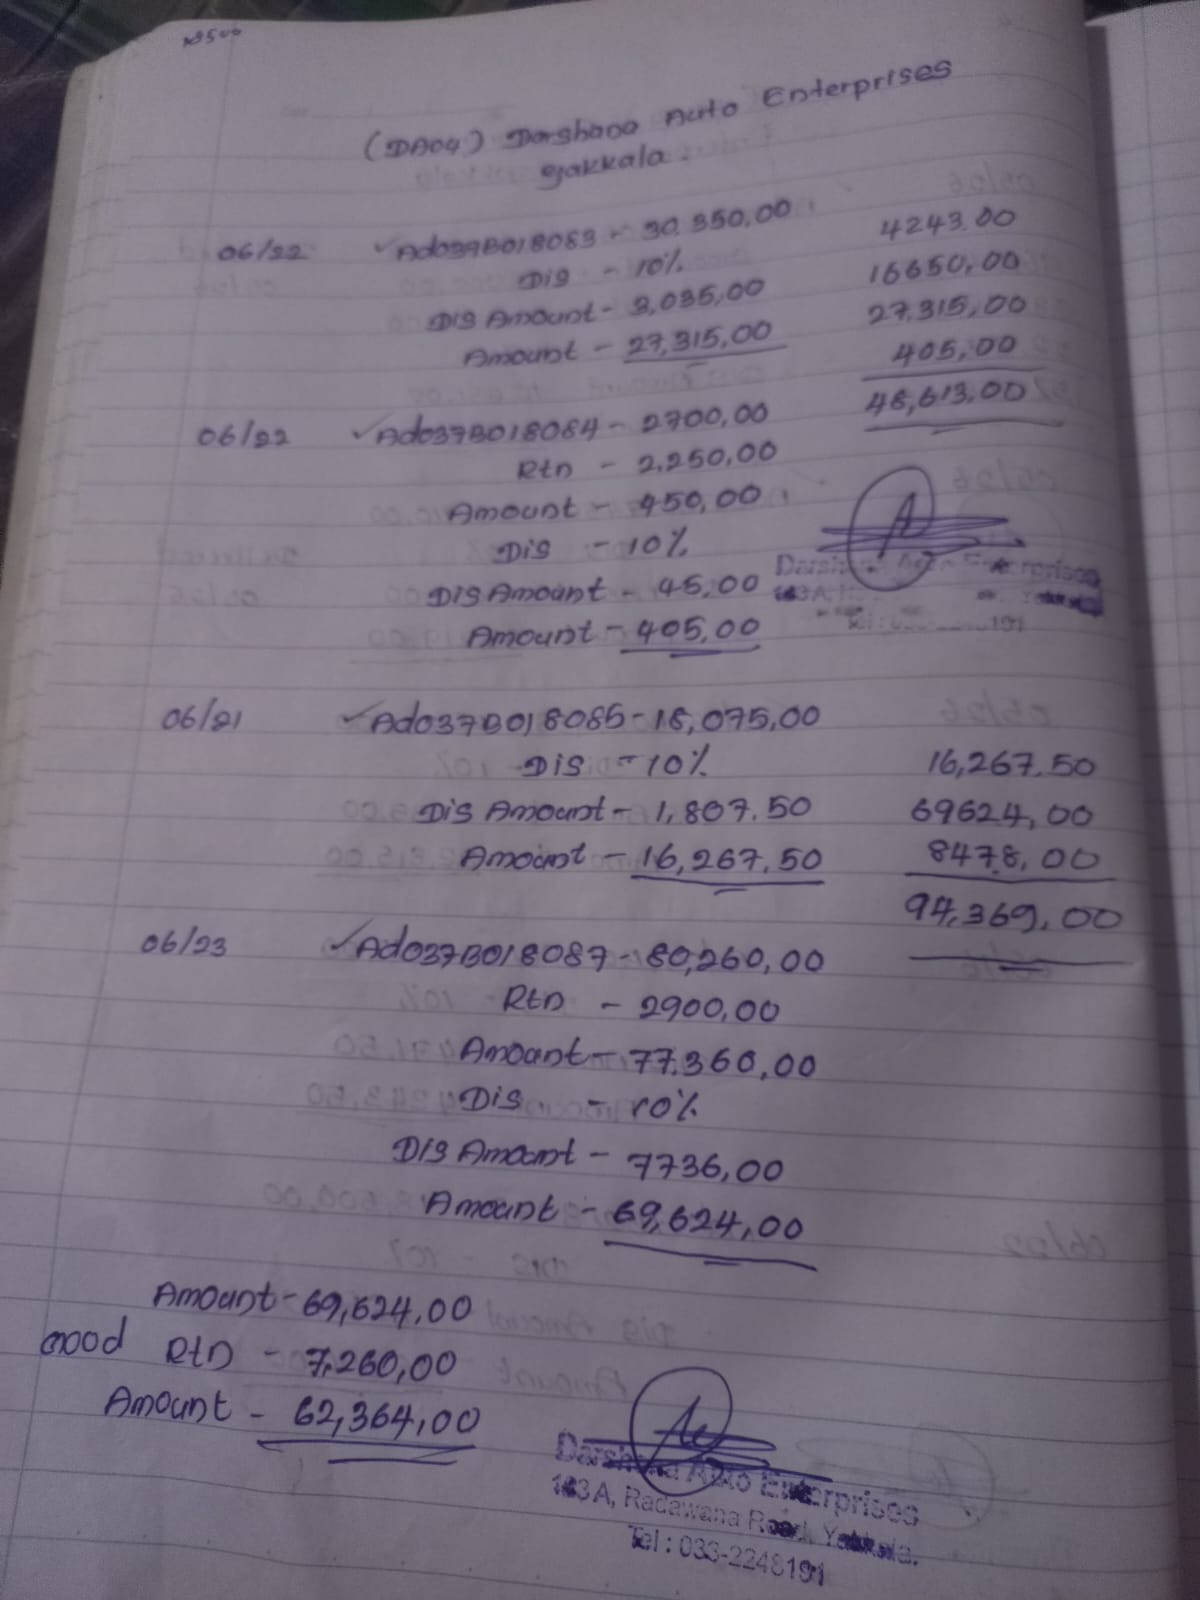 (DA04) Darshana Auto Enterprises
Yakkala.
06/22 ✓Ad037B018083 - 30,350,00
Dis - 10%
Dis Amount - 3,035,00
Amount - 27,315,00
4243.00
16650,00
27,315,00
405,00
48,613,00
06/22 ✓Ad037B018084 - 2700,00
Rtn - 2,250,00
Amount - 450,00
Dis - 10%
Dis Amount - 45,00
Amount - 405,00
Darshana Auto Enterprises
06/21 ✓Ad037B018085 - 18,075,00
Dis - 10%
Dis Amount - 1,807.50
Amount - 16,267,50
16,267.50
69624,00
8478,00
94,369,00
06/23 ✓Ad037B018087 - 80,260,00
Rtn - 2900,00
Amount - 77,360,00
Dis - 10%
Dis Amount - 7736,00
Amount - 69,624,00
Amount - 69,624,00
Good Rtn - 7,260,00
Amount - 62,364,00
Darshana Auto Enterprises
163A, Radawana Road, Yakkala.
Tel : 033-2248191